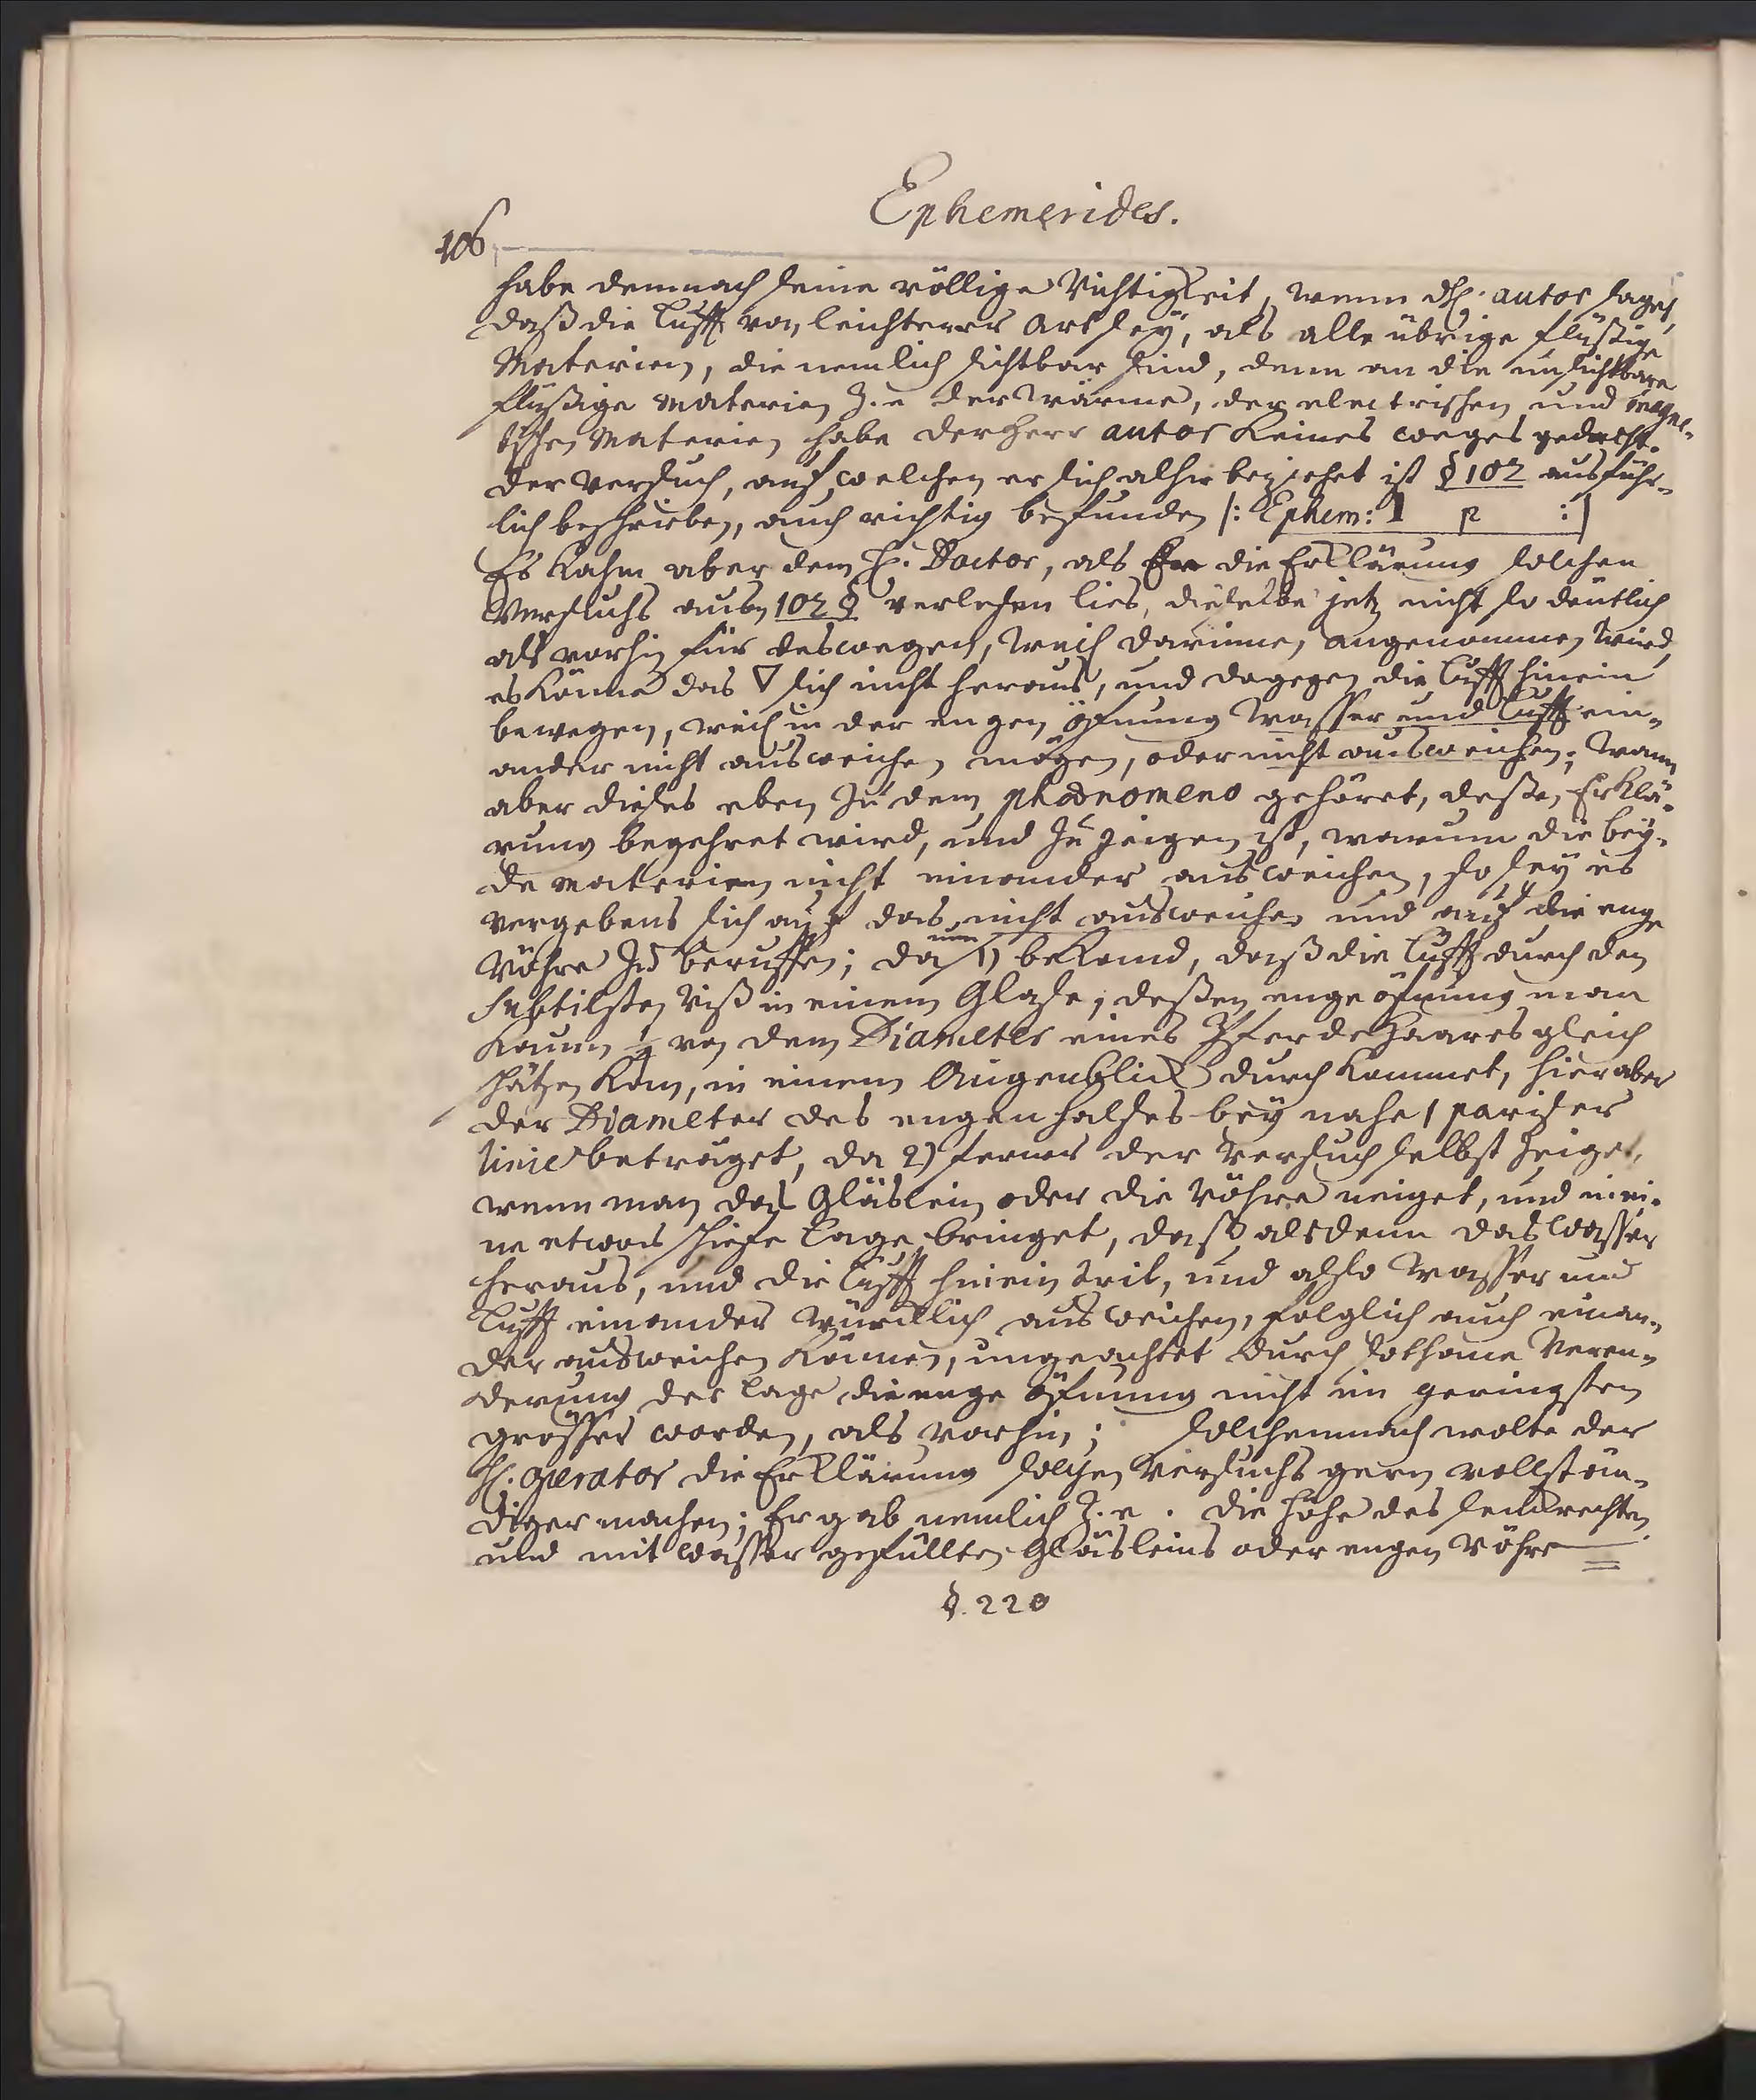 Ephemerides.
106
habe demnach seine völlige Richtigkeit, wenn dH. autor saget,
daß die Lufft von leichterer Art sey, als alle übrige flüßige
Materien, die nemlich sichtbar sind, denn an die unsichtbare
flüßige Materien z. e der Wärme, der electrischen und magne-
tischen Materien habe der Herr autor keines weges gedacht.
Der Versuch, auf welchen er sich alhier beziehet ist § 102 ausführ-
lich beschrieben, auch richtig befunden |: Ephem: I p :|
Es kahm aber dem H. Doctor, als Er die Erklärung solchen
Versuchs aus 102 § verlesen lies, dieselbe jetz nicht so deutlich
als vorhin für deswegen, weil darinne, angenommen wird,
es könne das ▽ sich nicht heraus, und dagegen die Lufft hinein
bewegen, weil in der engen öfnung Wasser und Lufft ein-
ander nicht ausweichen mögen, oder nicht ausweichen; Wann
aber dieses eben zu dem phænomeno gehöret, deßen Erklä-
rung begehret wird, und zu zeigen ist, warum die bey-
de Materien nicht einander ausweichen, so sey es
vergebens sich auf das nicht ausweichen und auf die enge
Röhre zu beruffen; da nun 1) bekand, daß die Lufft durch den
subtilsten Riß in einem Glase, deßen enge öfnung man
kaum von dem Diameter eines Pferdehaares gleich
schätzen kan, in einem Augenblick durch kommet, hier aber
der Diameter des engen halses bey nahe 1 pariser
linie beträget, da 2) ferner der Versuch selbst zeiget,
wenn man das Gläslein oder die Röhre neiget, und in ei-
ne etwas schiefe Lage bringet, daß alsdenn das Wasser
heraus, und die Lufft hinein tril, und also Wasser und
Lufft einander würcklich ausweichen, folglich auch einan-
der ausweichen können, ungeachtet durch sothane Veren-
derung der Lage die enge öfnung nicht im geringsten
grösser worden, als vorhin; solchemnach wolte der
H. Operator die Erklärung solchen Versuchs gern vollstän-
diger machen; Er gab nemlich z. e. die Höhe des senckrechten
und mit Wasser gefüllten Gläsleins oder engen Röhre
§. 220